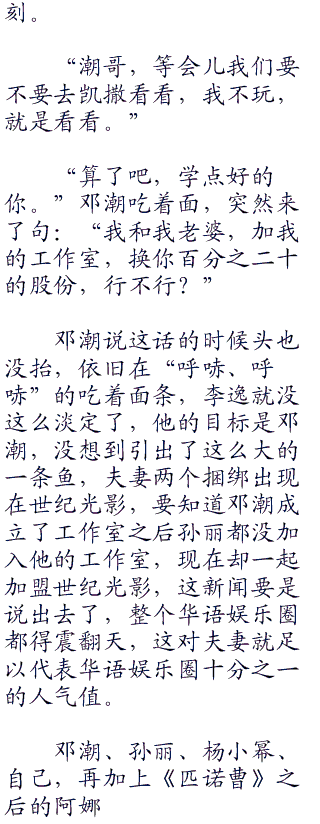 刻。
“潮哥，等会儿我们要
不要去凯撒看看，我不玩，
就是看看。”
“算了吧，学点好的
你。”邓潮吃着面，突然来
了句：“我和我老婆，加我
的工作室，换你百分之二十
的股份，行不行？”
邓潮说这话的时候头也
没抬，依旧在“呼哧、呼
哧”的吃着面条，李逸就没
这么淡定了，他的目标是邓
潮，没想到引出了这么大的
一条鱼，夫妻两个捆绑出现
在世纪光影，要知道邓潮成
立了工作室之后孙丽都没加
入他的工作室，现在却一起
加盟世纪光影，这新闻要是
说出去了，整个华语娱乐圈
都得震翻天，这对夫妻就足
以代表华语娱乐圈十分之一
的人气值。
邓潮、孙丽、杨小幂、
自己，再加上《匹诺曹》之
后的阿娜